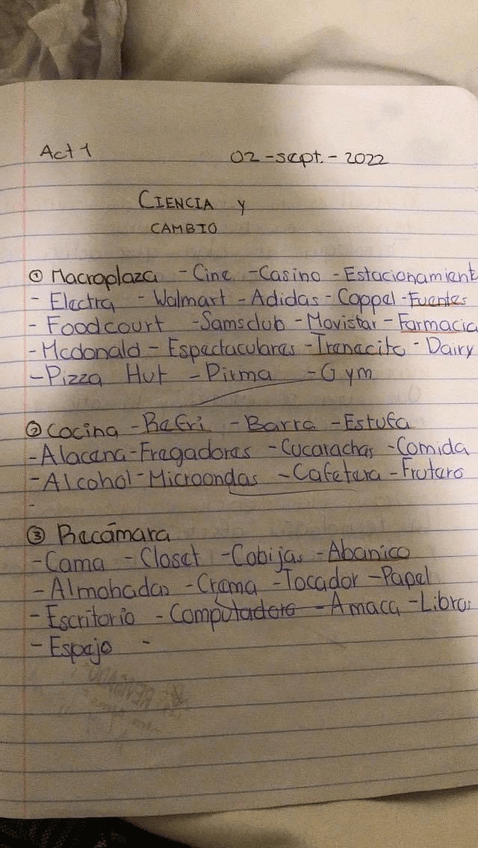 Act 1 02-sept.-2022
CIENCIA Y
CAMBIO
① Macroplaza -Cine -Casino -Estacionamient
- Electra -Walmart -Adidas -Coppel -Fuentes
-Foodcourt -Samsclub -Movistar -Farmacia
-Mcdonald -Espectaculares -Trenecito -Dairy
-Pizza Hut -Pirma -Gym
② Cocina -Refri -Barra -Estufa
-Alacena -Fregadores -Cucarachas -Comida
-Alcohol -Microondas -Cafetera -Frutero
-
③ Recámara
-Cama -Closet -Cobijas -Abanico
-Almohadas -Crema -Tocador -Papel
-Escritorio -Computadora -Amaca -Libros
-Espejo -